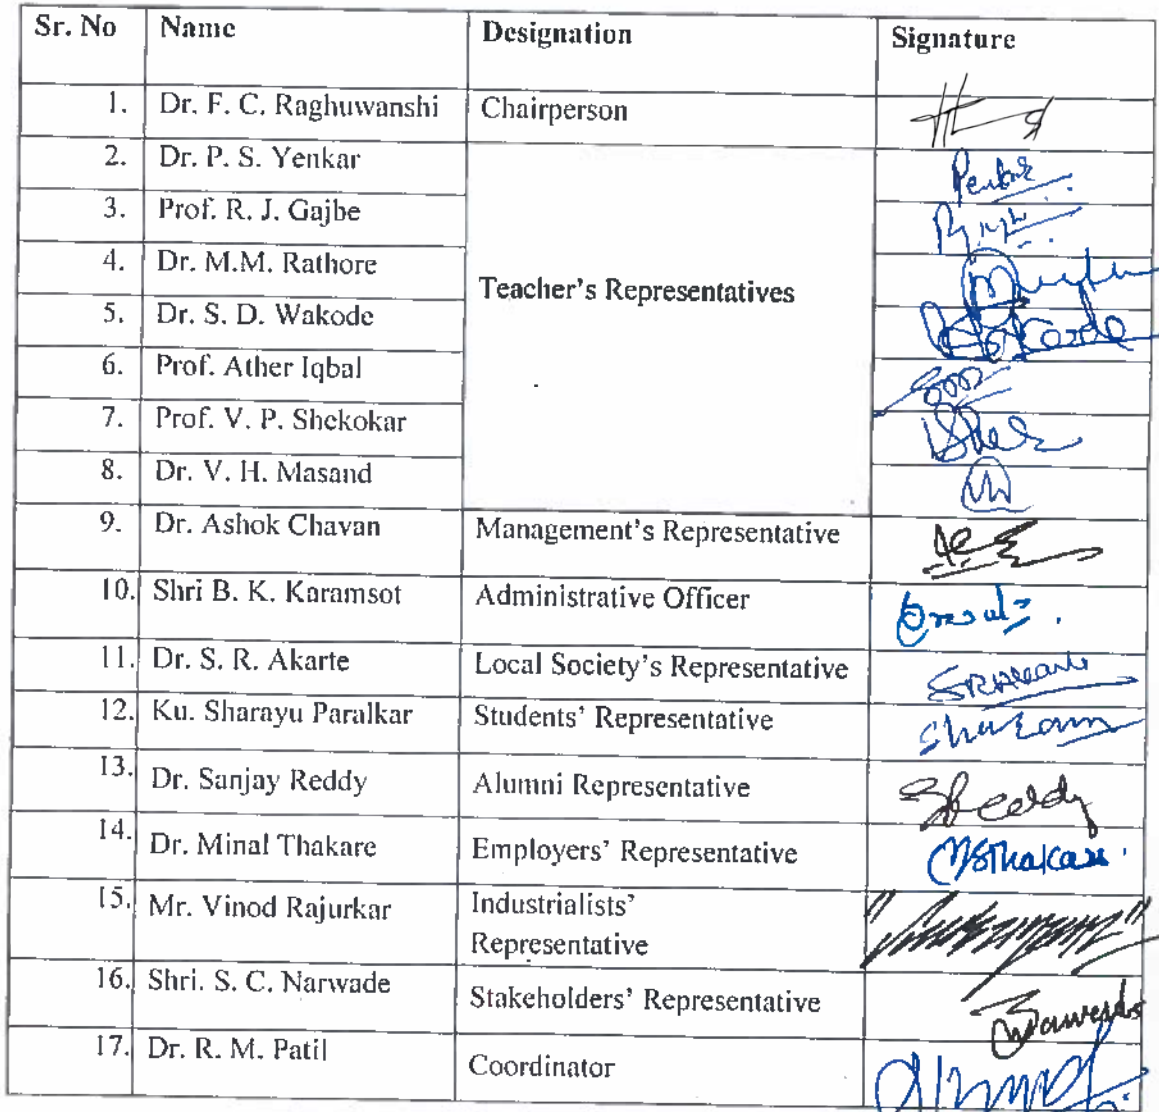 Sr. No Name Designation Signature
1. Dr. F. C. Raghuwanshi Chairperson
2. Dr. P. S. Yenkar
3. Prof. R. J. Gajbe
4. Dr. M.M. Rathore
Teacher's Representatives
5. Dr. S. D. Wakode
6. Prof. Ather Iqbal
7. Prof. V. P. Shekokar
8. Dr. V. H. Masand
9. Dr. Ashok Chavan Management's Representative
10. Shri B. K. Karamsot Administrative Officer
11. Dr. S. R. Akarte Local Society's Representative
12. Ku. Sharayu Paralkar Students' Representative
13. Dr. Sanjay Reddy Alumni Representative
14. Dr. Minal Thakare Employers' Representative MSThakare
15. Mr. Vinod Rajurkar Industrialists'
Representative
16. Shri. S. C. Narwade Stakeholders' Representative
17. Dr. R. M. Patil Coordinator